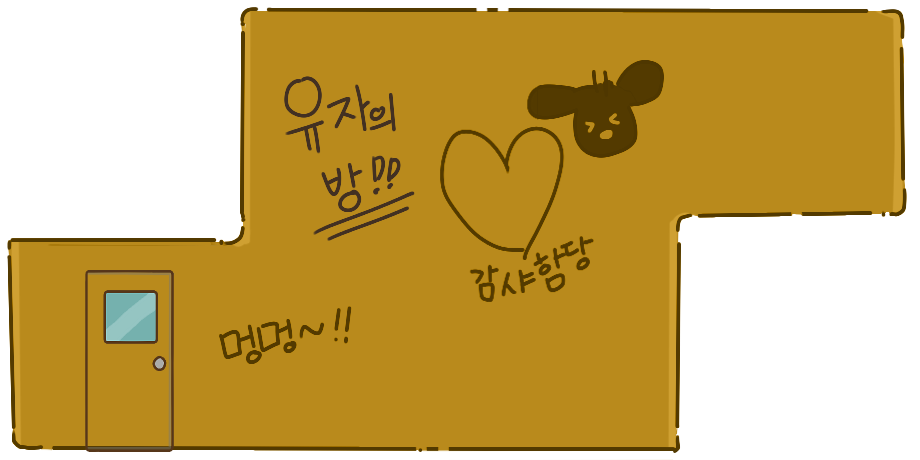 유자의
방!!
감샤함당
멍멍~!!